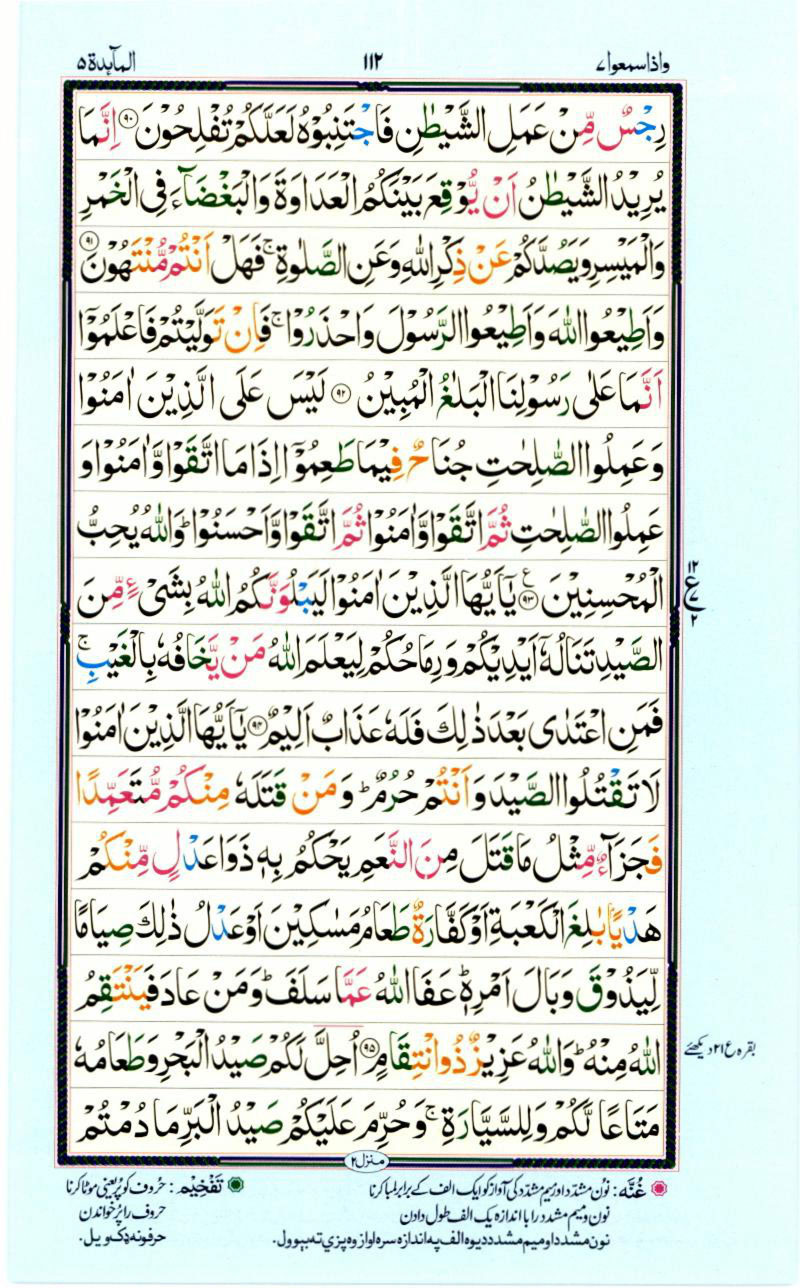 واذا سمعوا ۷
۱۱۲
المآىِٕدة ۵
رِجْسٌ مِّنْ عَمَلِ الشَّيْطٰنِ فَاجْتَنِبُوْهُ لَعَلَّكُمْ تُفْلِحُوْنَ ﴿۹۰﴾ اِنَّمَا
يُرِيْدُ الشَّيْطٰنُ اَنْ يُّوْقِعَ بَيْنَكُمُ الْعَدَاوَةَ وَالْبَغْضَآءَ فِى الْخَمْرِ
وَالْمَيْسِرِ وَيَصُدَّكُمْ عَنْ ذِكْرِ اللّٰهِ وَعَنِ الصَّلٰوةِ ۚ فَهَلْ اَنْتُمْ مُّنْتَهُوْنَ ﴿۹۱﴾
وَاَطِيْعُوا اللّٰهَ وَاَطِيْعُوا الرَّسُوْلَ وَاحْذَرُوْا ۚ فَاِنْ تَوَلَّيْتُمْ فَاعْلَمُوْٓا
اَنَّمَا عَلٰى رَسُوْلِنَا الْبَلٰغُ الْمُبِيْنُ ﴿۹۲﴾ لَيْسَ عَلَى الَّذِيْنَ اٰمَنُوْا
وَعَمِلُوا الصّٰلِحٰتِ جُنَاحٌ فِيْمَا طَعِمُوْٓا اِذَا مَا اتَّقَوْا وَّاٰمَنُوْا وَ
عَمِلُوا الصّٰلِحٰتِ ثُمَّ اتَّقَوْا وَّاٰمَنُوْا ثُمَّ اتَّقَوْا وَّاَحْسَنُوْا ؕ وَاللّٰهُ يُحِبُّ
الْمُحْسِنِيْنَ ﴿۹۳﴾ ع يٰٓاَيُّهَا الَّذِيْنَ اٰمَنُوْا لَيَبْلُوَنَّكُمُ اللّٰهُ بِشَىْءٍ مِّنَ
۱۲
ع
۷
۲
الصَّيْدِ تَنَالُهٗٓ اَيْدِيْكُمْ وَرِمَاحُكُمْ لِيَعْلَمَ اللّٰهُ مَنْ يَّخَافُهٗ بِالْغَيْبِ ۚ
فَمَنِ اعْتَدٰى بَعْدَ ذٰلِكَ فَلَهٗ عَذَابٌ اَلِيْمٌ ﴿۹۴﴾ يٰٓاَيُّهَا الَّذِيْنَ اٰمَنُوْا
لَا تَقْتُلُوا الصَّيْدَ وَاَنْتُمْ حُرُمٌ ؕ وَمَنْ قَتَلَهٗ مِنْكُمْ مُّتَعَمِّدًا
فَجَزَآءٌ مِّثْلُ مَا قَتَلَ مِنَ النَّعَمِ يَحْكُمُ بِهٖ ذَوَا عَدْلٍ مِّنْكُمْ
هَدْيًاۢ بٰلِغَ الْكَعْبَةِ اَوْ كَفَّارَةٌ طَعَامُ مَسٰكِيْنَ اَوْ عَدْلُ ذٰلِكَ صِيَامًا
لِّيَذُوْقَ وَبَالَ اَمْرِهٖ ؕ عَفَا اللّٰهُ عَمَّا سَلَفَ ؕ وَمَنْ عَادَ فَيَنْتَقِمُ
اللّٰهُ مِنْهُ ؕ وَاللّٰهُ عَزِيْزٌ ذُو انْتِقَامٍ ﴿۹۵﴾ اُحِلَّ لَكُمْ صَيْدُ الْبَحْرِ وَطَعَامُهٗ
بقرہ ع ۲۱ دیکھئے
مَتَاعًا لَّكُمْ وَلِلسَّيَّارَةِ ۚ وَحُرِّمَ عَلَيْكُمْ صَيْدُ الْبَرِّ مَا دُمْتُمْ
منزل ۲
غُنَّه: نون مشدد اور میم مشدد کی آواز کو ایک الف کے برابر لمبا کرنا
تَفْخِيْم: حروف کو پُر یعنی موٹا کرنا
نون و میم مشدد را با اندازه یک الف طول دادن
حروف را پر خواندن
نون مشدد او میم مشدد دیوه الف په اندازه سره اواز وه پزی ته بیوول.
حرفونه ډک ویل.